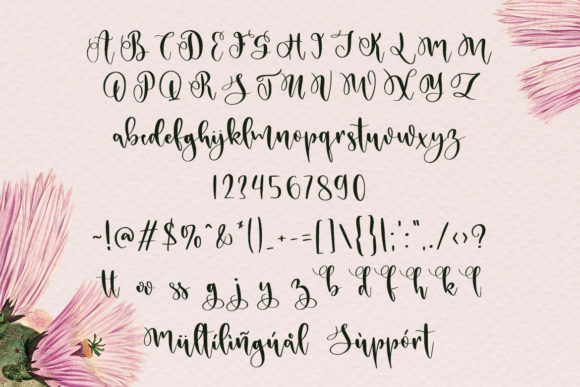 A B C D E F G H I J K L M N
O P Q R S T U V W X Y Z
abcdefghijklmnopqrstuvwxyz
1234567890
~!@#$%^&*()_+-=[]\{}|;':",./<>?
tt oo ss g j y z b d f h k l
Mültílíñgúål Sùppórt